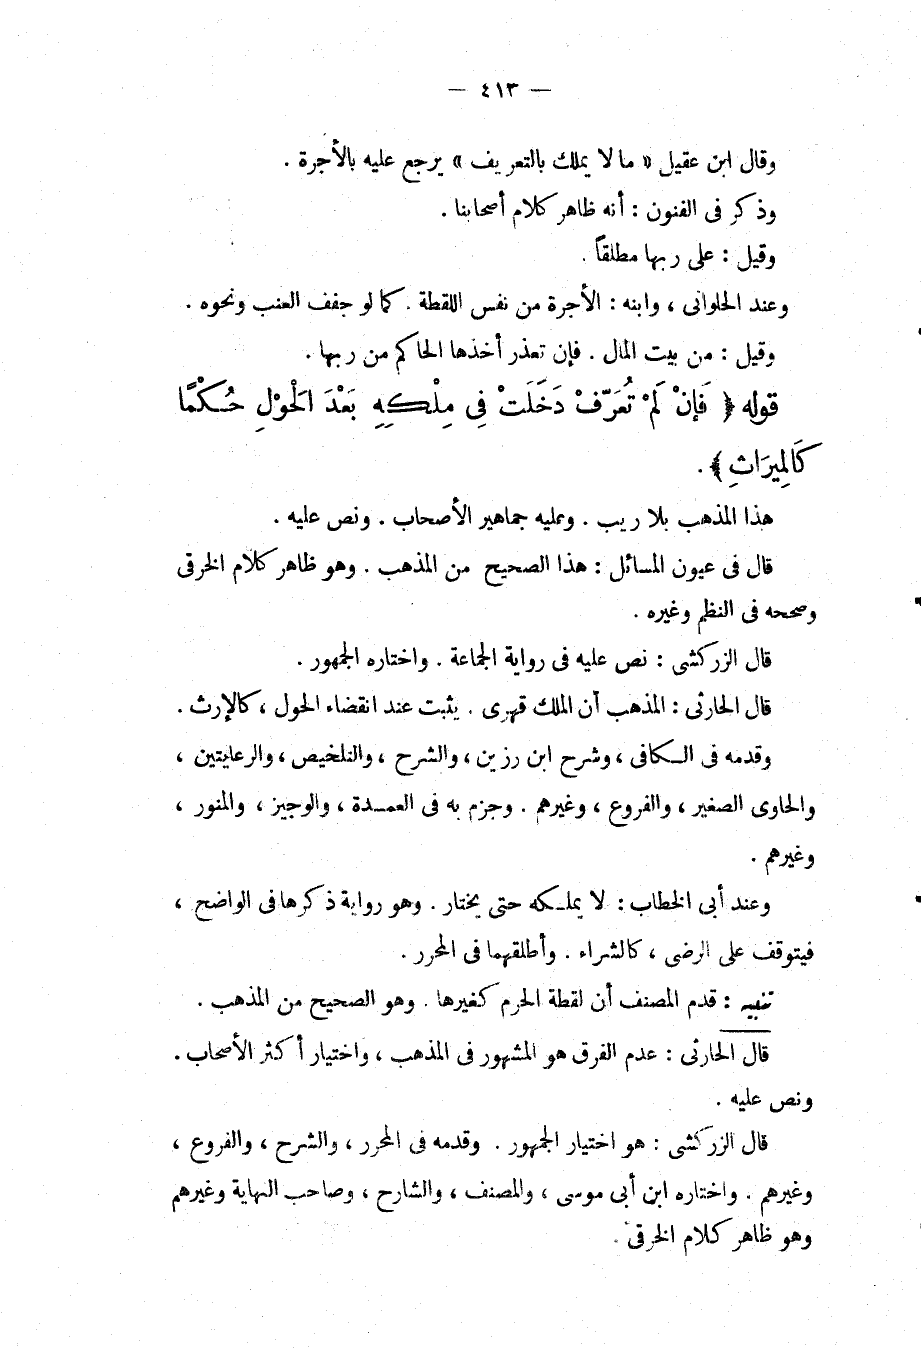 — ٤١٣ —
وقال ابن عقيل « ما لا يملك بالتعريف » يرجع عليه بالأجرة .
وذكر فى الفنون : أنه ظاهر كلام أصحابنا .
وقيل : على ربها مطلقاً .
وعند الحلوانى ، وابنه : الأجرة من نفس اللقطة . كما لو جفف العنب ونحوه .
وقيل : من بيت المال . فإن تعذر أخذها الحاكم من ربها .
قوله ﴿ فَإِنْ لَمْ تُعَرَّفْ دَخَلَتْ فِي مِلْكِهِ بَعْدَ الْحَوْلِ حُكْمًا
كَالْمِيرَاثِ ﴾ .
هذا المذهب بلا ريب . وعليه جماهير الأصحاب . ونص عليه .
قال فى عيون المسائل : هذا الصحيح من المذهب . وهو ظاهر كلام الخرقى
وصححه فى النظم وغيره .
قال الزركشى : نص عليه فى رواية الجماعة . واختاره الجمهور .
قال الحارثى : المذهب أن الملك قهرى . يثبت عند انقضاء الحول ، كالإرث .
وقدمه فى الـكافى ، وشرح ابن رزين ، والشرح ، والتلخيص ، والرعايتين ،
والحاوى الصغير ، والفروع ، وغيرهم . وجزم به فى العمـدة ، والوجيز ، والمنور ،
وغيرهم .
وعند أبى الخطاب : لا يملـكه حتى يختار . وهو رواية ذكرها فى الواضح ،
فيتوقف على الرضى ، كالشراء . وأطلقهما فى المحرر .
تنبيه : قدم المصنف أن لقطة الحرم كغيرها . وهو الصحيح من المذهب .
قال الحارثى : عدم الفرق هو المشهور فى المذهب ، واختيار أكثر الأصحاب .
ونص عليه .
قال الزركشى : هو اختيار الجمهور . وقدمه فى المحرر ، والشرح ، والفروع ،
وغيرهم . واختاره ابن أبى موسى ، والمصنف ، والشارح ، وصاحب النهاية وغيرهم
وهو ظاهر كلام الخرقى .